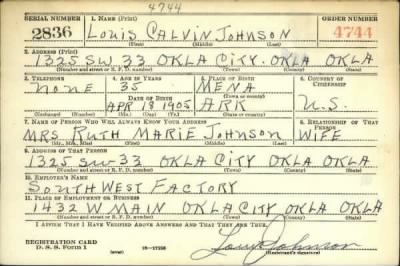 4744
SERIAL NUMBER 1. NAME (Print) ORDER NUMBER
2836 LOUIS CALVIN JOHNSON 4744
(First) (Middle) (Last)
2. ADDRESS (Print)
1325 SW 33 OKLA CITY. OKLA OKLA
(Number and street or R. F. D. number) (Town) (County) (State)
3. TELEPHONE 4. AGE IN YEARS 5. PLACE OF BIRTH 6. COUNTRY OF CITIZENSHIP
NONE 35 MENA
DATE OF BIRTH (Town or county)
APR 18 1905 ARK U.S.
(Exchange) (Number) (Mo.) (Day) (Yr.) (State or country)
7. NAME OF PERSON WHO WILL ALWAYS KNOW YOUR ADDRESS 8. RELATIONSHIP OF THAT PERSON
MRS RUTH MARIE JOHNSON WIFE
(Mr., Mrs., Miss) (First) (Middle) (Last)
9. ADDRESS OF THAT PERSON
1325 SW 33 OKLA CITY OKLA OKLA
(Number and street or R. F. D. number) (Town) (County) (State)
10. EMPLOYER'S NAME
SOUTH WEST FACTORY
11. PLACE OF EMPLOYMENT OR BUSINESS
1432 W MAIN OKLA CITY OKLA OKLA
(Number and street or R. F. D. number) (Town) (County) (State)
I AFFIRM THAT I HAVE VERIFIED ABOVE ANSWERS AND THAT THEY ARE TRUE.
REGISTRATION CARD
D. S. S. Form 1 (over) 16—17105 Louis Johnson
(Registrant's signature)